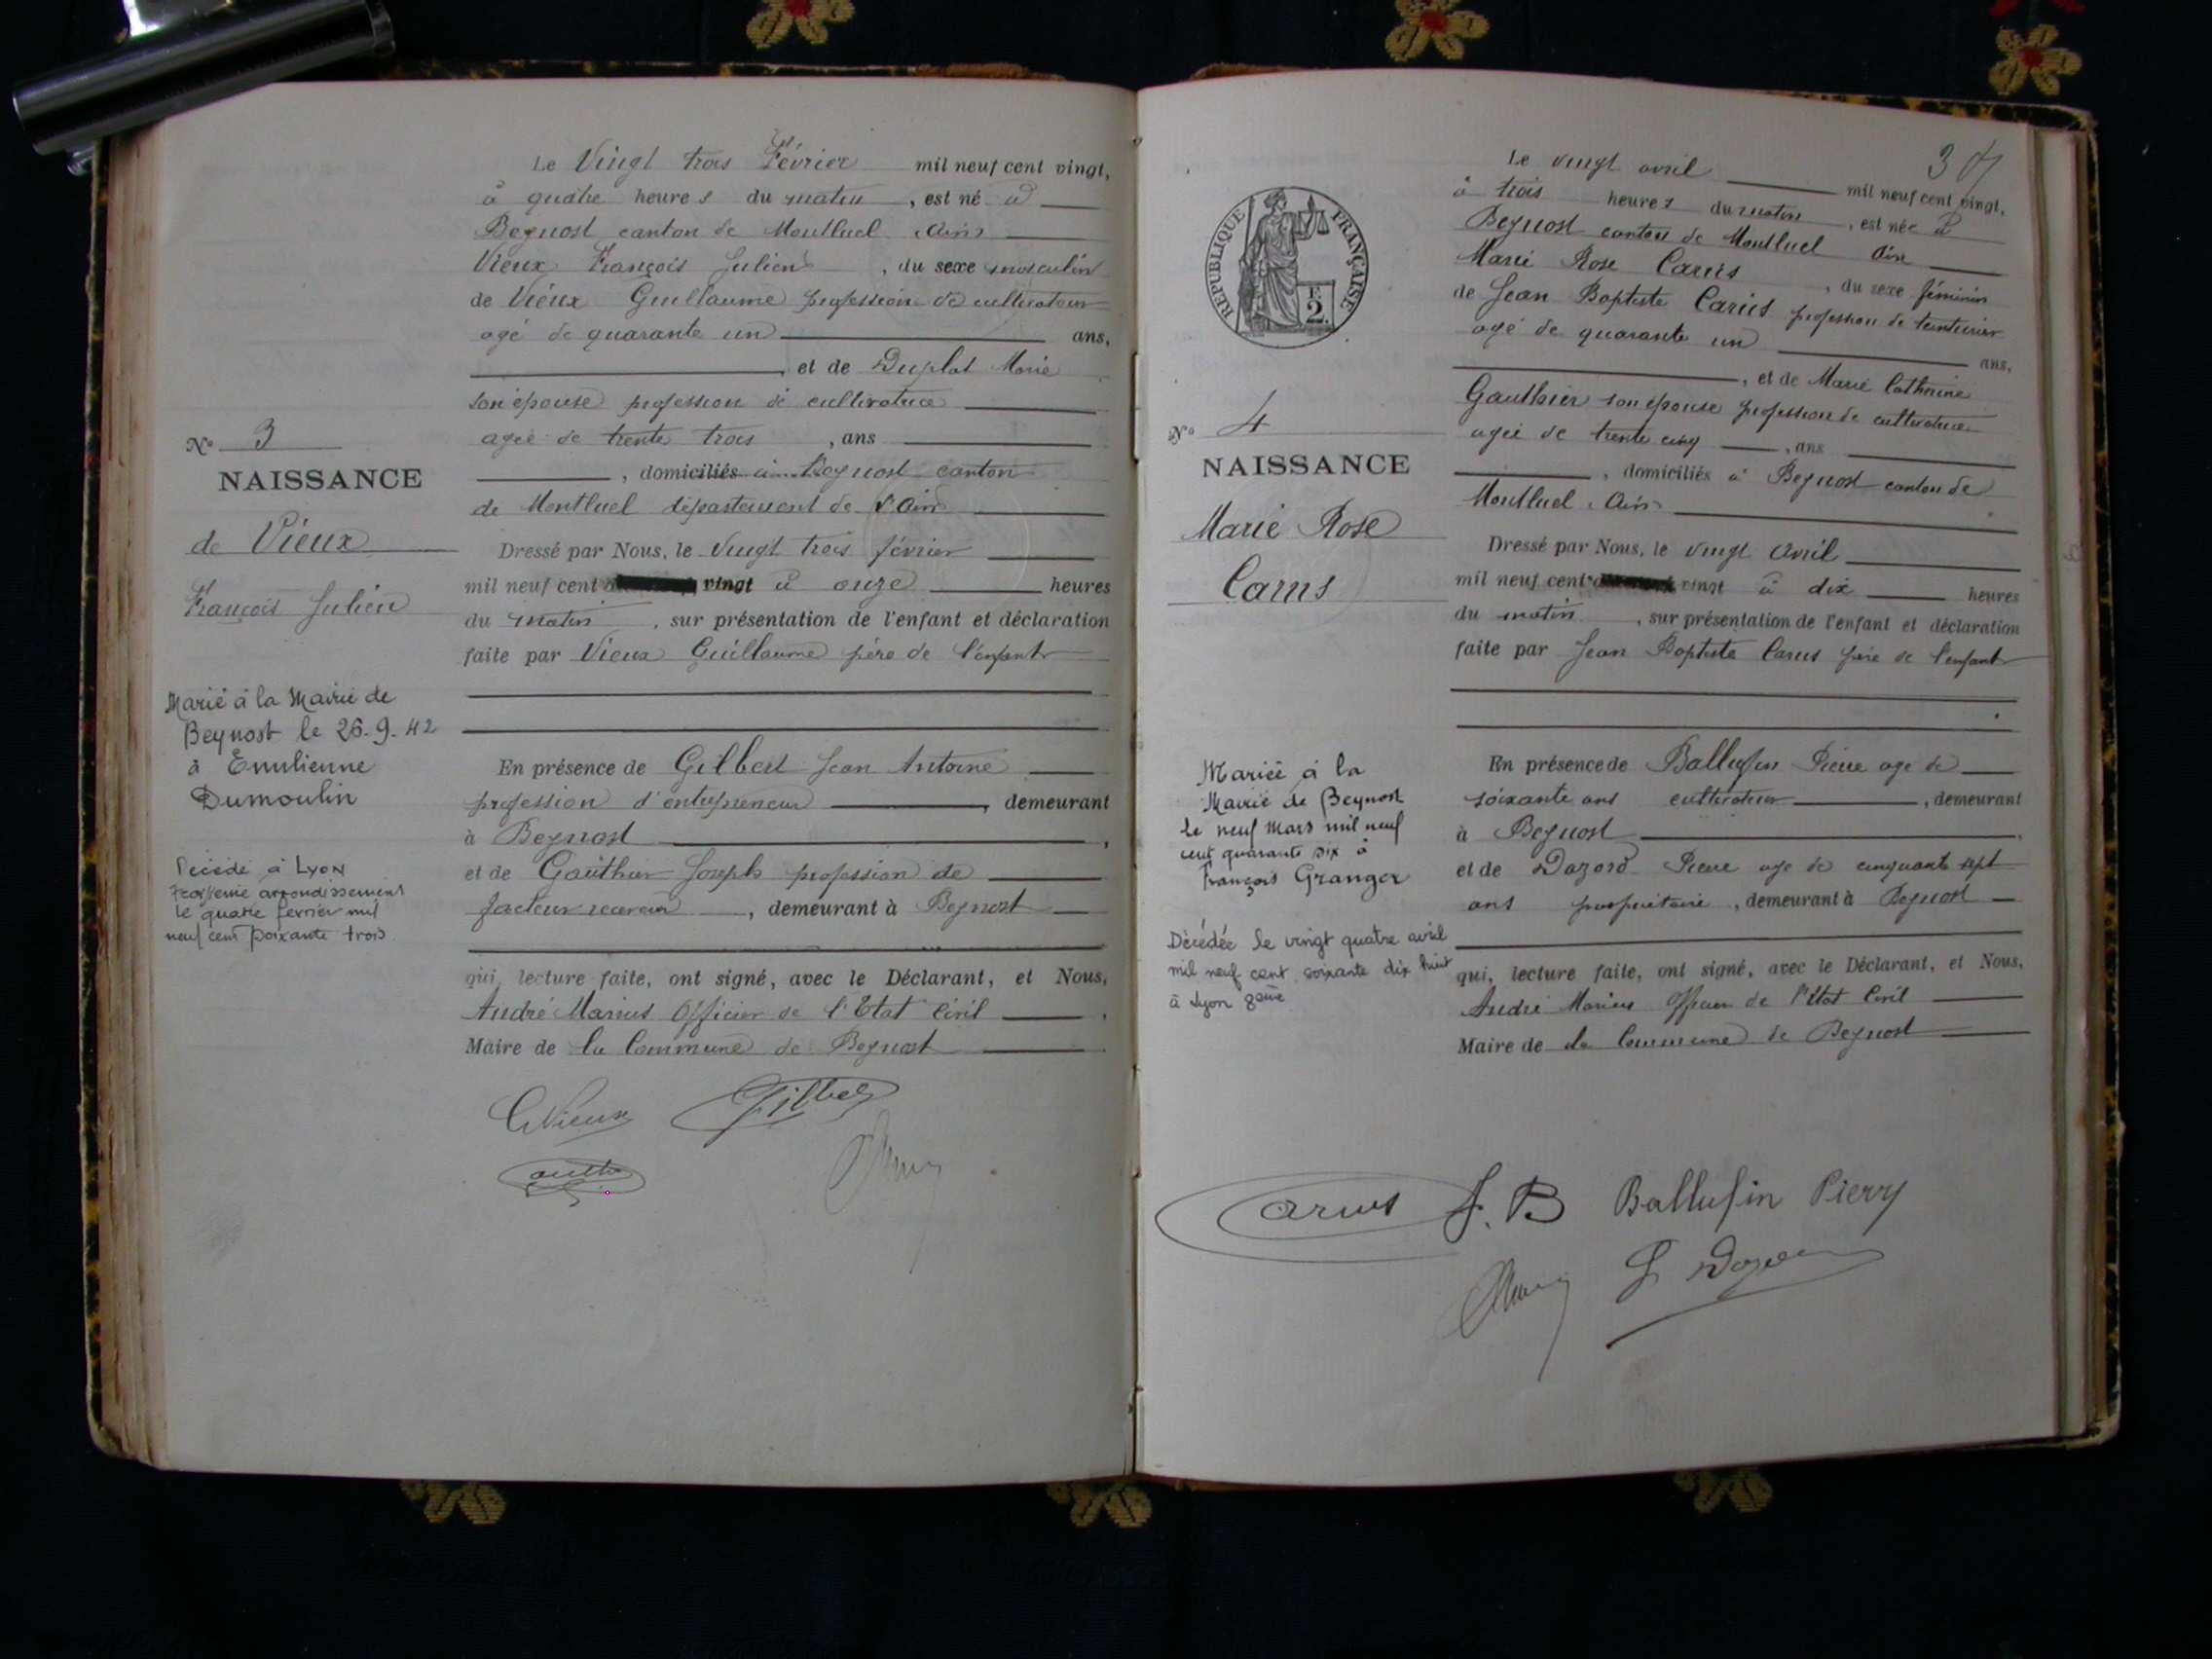 Le Vingt trois Février mil neuf cent vingt,
à quatre heures du matin, est né à
Beynost canton de Montluel Ain
Vieux François Julien, du sexe masculin
de Vieux Guillaume profession de cultivateur
agé de quarante un ans,
et de Duplat Marie
son épouse profession de cultivatrice
agée de trente trois, ans
, domiciliés à Beynost canton
de Montluel département de l'Ain
Dressé par Nous, le Vingt trois février
mil neuf cent vingt à onze heures
du matin, sur présentation de l'enfant et déclaration
faite par Vieux Guillaume père de l'enfant
En présence de Gilbert Jean Antoine
profession d'entrepreneur, demeurant
à Beynost,
et de Gauthier Joseph profession de
facteur receveur, demeurant à Beynost
qui, lecture faite, ont signé, avec le Déclarant, et Nous,
André Marius Officier de l'Etat Civil
Maire de la Commune de Beynost
GVieux Gilbert
No 3
NAISSANCE
de Vieux
François Julien
Marié à la Mairie de
Beynost le 26-9-42
à Emilienne
Dumoulin
Décédé à Lyon
arrondissement
le quatre février mil
neuf cent soixante trois
Le vingt avril mil neuf cent vingt,
à trois heures du matin, est née à
Beynost canton de Montluel Ain
Marie Rose Carus, du sexe féminin
de Jean Baptiste Carus profession de teinturier
agé de quarante un ans,
, et de Marie Catherine
Gauthier son épouse profession de cultivatrice
agée de trente cinq, ans
, domiciliés à Beynost canton de
Montluel Ain
Dressé par Nous, le vingt Avril
mil neuf cent vingt à dix heures
du matin, sur présentation de l'enfant et déclaration
faite par Jean Baptiste Carus père de l'enfant
En présence de Ballufin Pierre age de
soixante ans cultivateur, demeurant
à Beynost
et de Dazord Pierre age de cinquante sept
ans propriétaire, demeurant à Beynost
qui, lecture faite, ont signé, avec le Déclarant, et Nous,
André Marius Officier de l'Etat Civil
Maire de la Commune de Beynost
Carus J. B Ballufin Pierr
REPUBLIQUE FRANÇAISE
F.
2.
No 4
NAISSANCE
Marie Rose
Carus
Mariée à la
Mairie de Beynost
le neuf Mars mil neuf
cent quarante six à
François Granger
Décédée le vingt quatre avril
mil neuf cent soixante dix huit
à Lyon 8ème